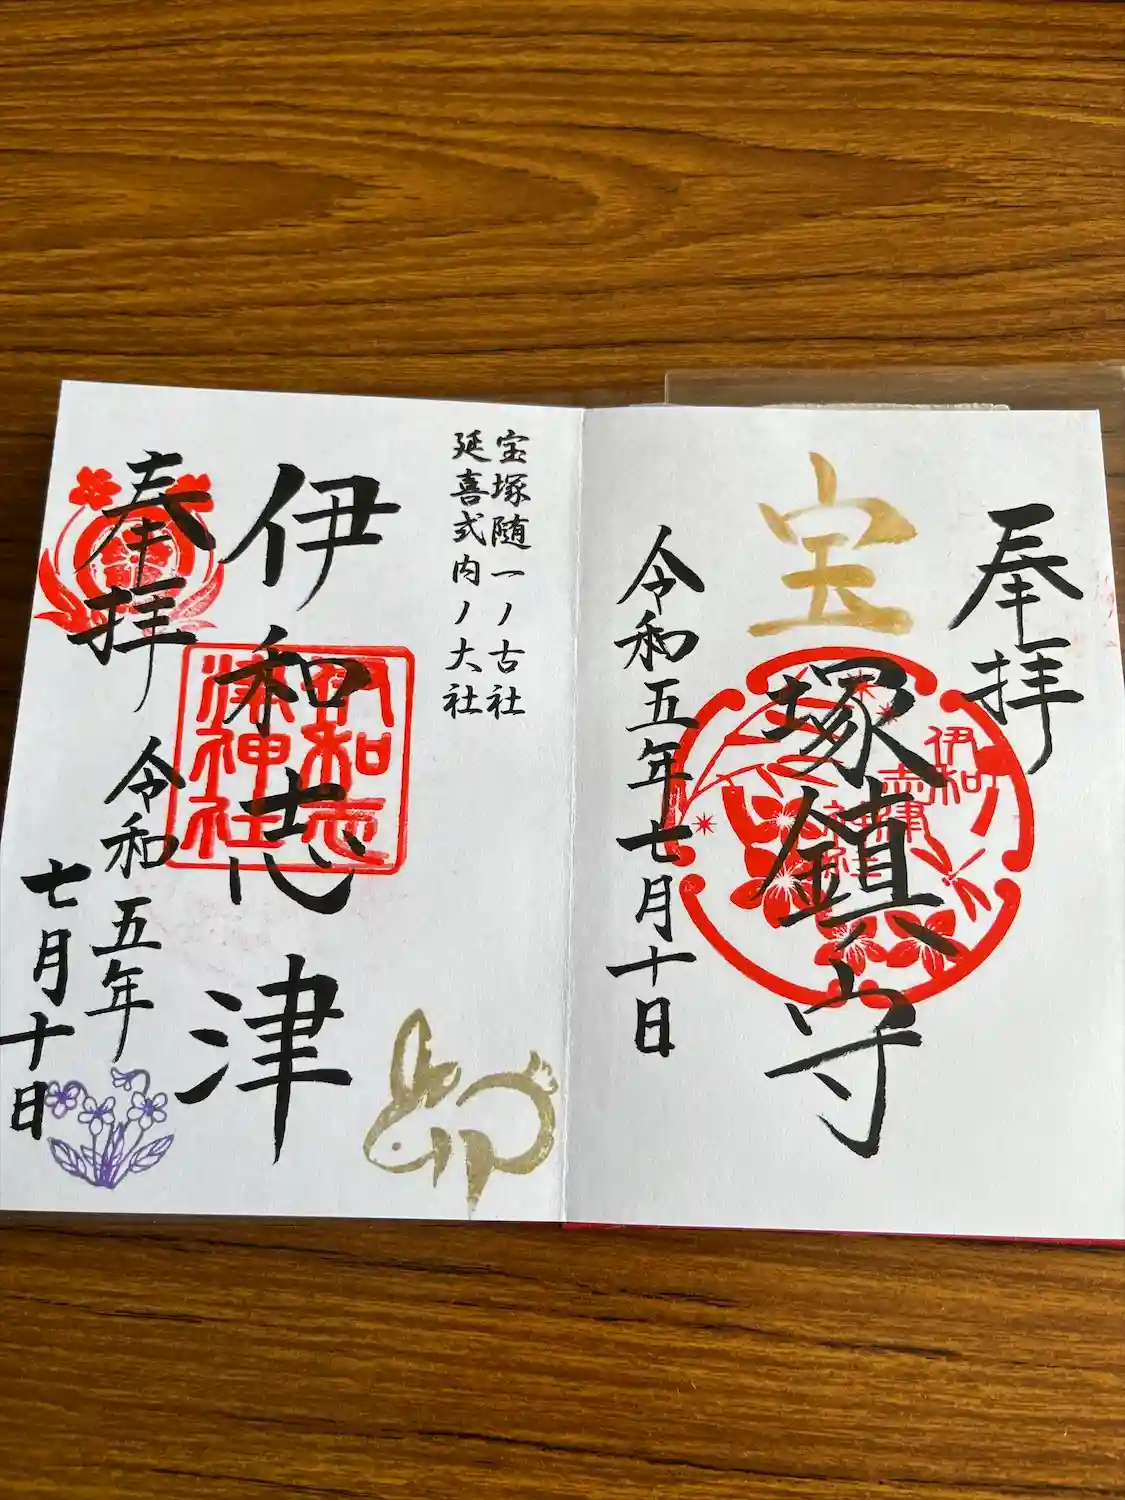 奉拝
宝塚鎮守
伊和
志津
神社
令和五年七月十日
宝塚随一ノ古社
延喜式内ノ大社
伊和志津
伊和志
津神社
奉拝
令和五年
七月十日